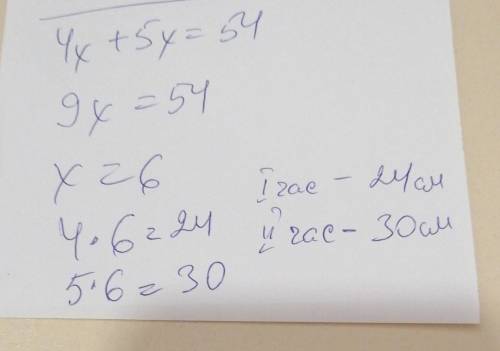 4x + 5x = 54
9x = 54
x = 6
4 · 6 = 24
5 · 6 = 30
I час - 24см
II час - 30см